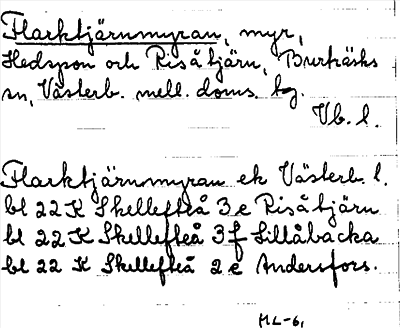 Flarktjärnmyran, myr,
Hedspon och Risåtjärn, Burträsks
sn, Västerb. mell. doms. bg.
Vb. l.
Flarktjärnmyran ek Västerb. l.
bl 22 K Skellefteå 3 e Risåtjärn
bl 22 K Skellefteå 3 f Lillåbacka
bl 22 K Skellefteå 2 e Andersfors.
ML-6,